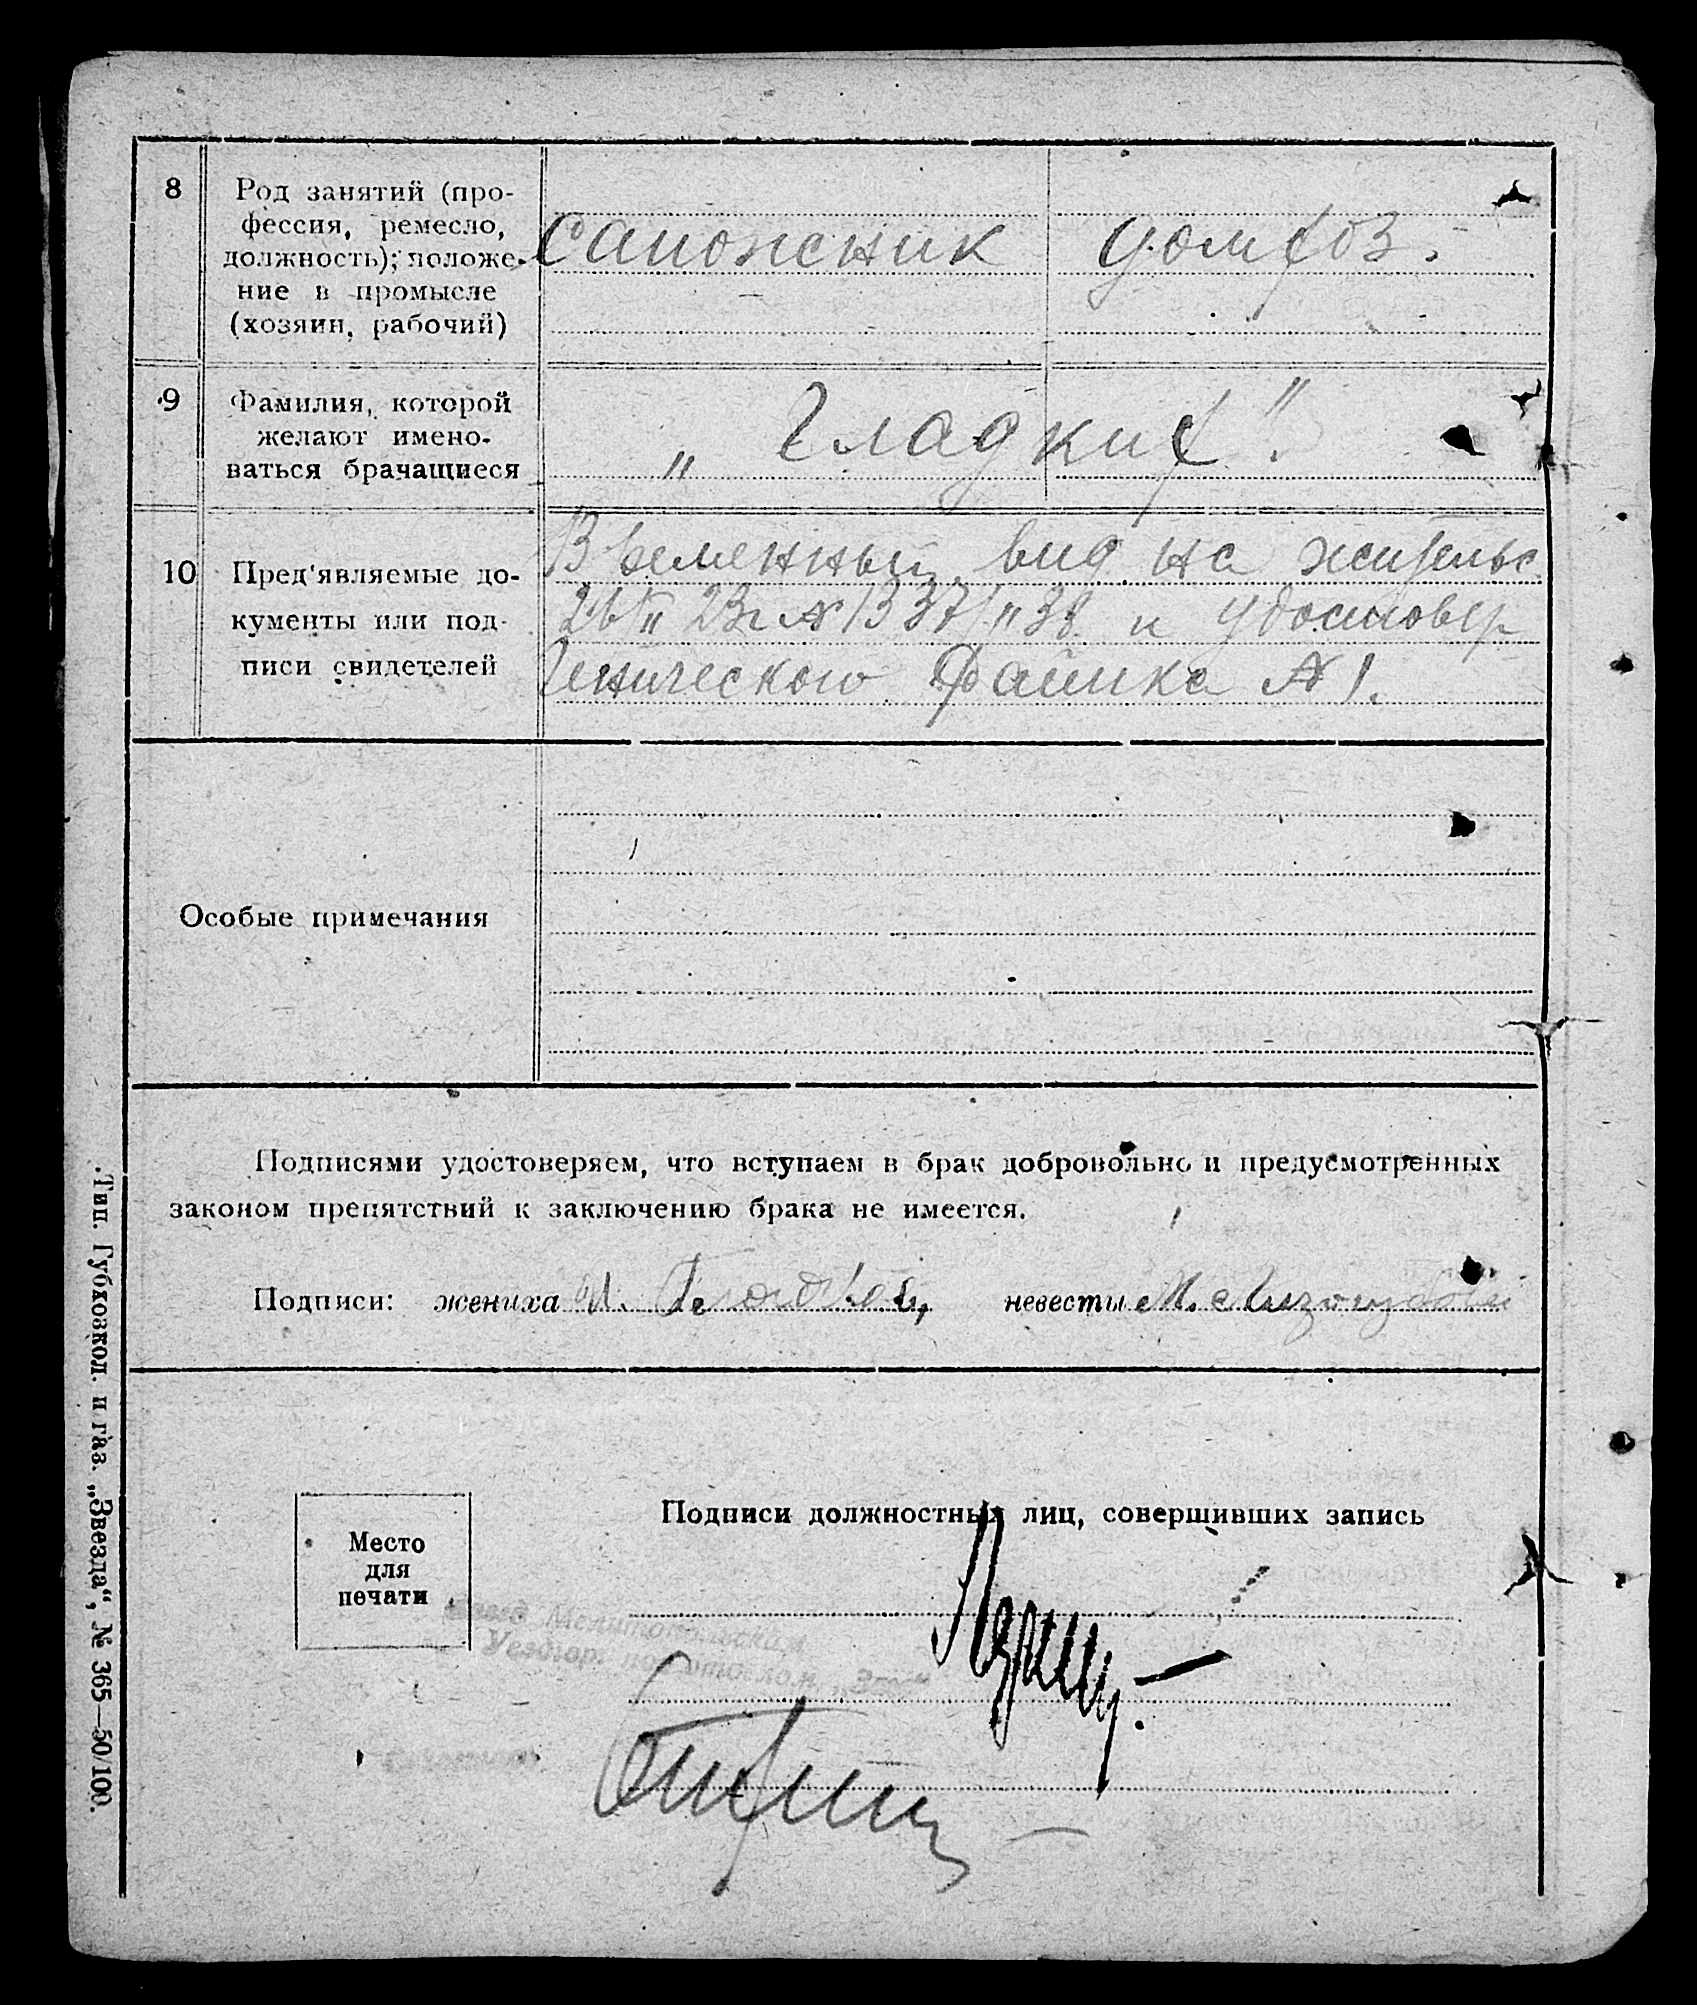 8
Род занятий (про-
фессия, ремесло,
должность); положе-
ние в промысле
(хозяин, рабочий)
сапожник
домхоз.
9
Фамилия, которой
желают имено-
ваться брачащиеся
„ Гладких "
10
Пред'являемые до-
кументы или под-
писи свидетелей
Временный вид на жительс
23г № и удостовер
Генического № 1.
Особые примечания
Подписями удостоверяем, что вступаем в брак добровольно и предусмотренных
законом препятствий к заключению брака не имеется.
Подписи: жениха невесты М.
Место
для
печати
Подписи должностных лиц, совершивших запись
Мелитопольска
Уездгор.
Тип. Губкозкол. и газ. „Звезда“, № 365—50/100.